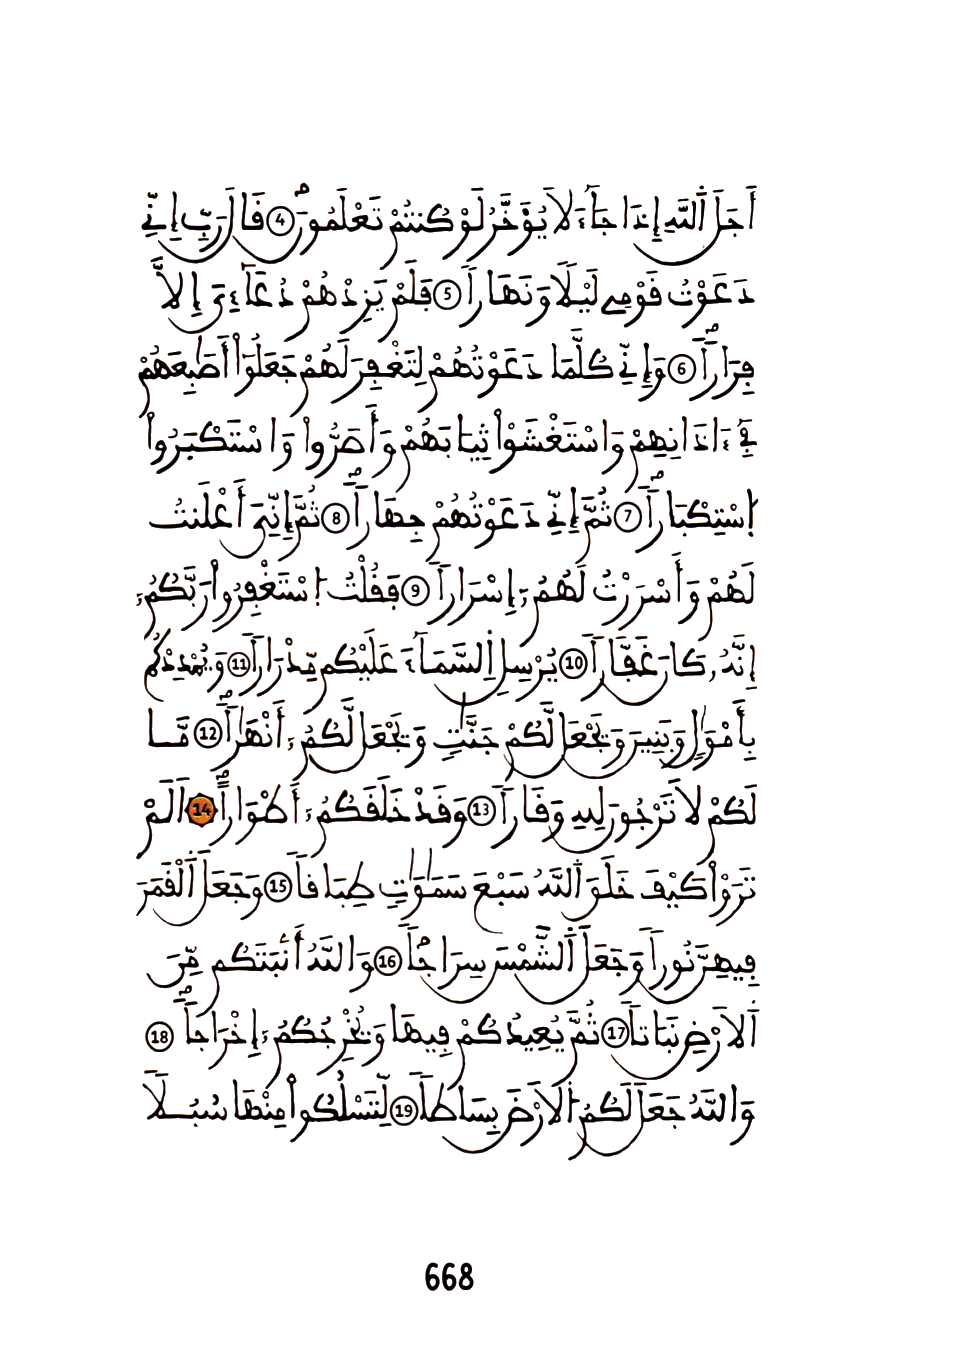 أَجَلَ اَللَّهِ إِذَا جَآءَ لَا يُؤَخَّرُ لَوْ كُنتُمْ تَعْلَمُونَۖ 4 قَالَ رَبِّ إِنِّے
دَعَوْتُ قَوْمِے لَيْلاٗ وَنَهَاراٗ 5 فَلَمْ يَزِدْهُمْ دُعَآءِيَ إِلَّا
فِرَاراٗۖ 6 وَإِنِّے كُلَّمَا دَعَوْتُهُمْ لِتَغْفِرَ لَهُمْ جَعَلُوٓاْ أَصَٰبِعَهُمْ
فِےٓ ءَاذَانِهِمْ وَاسْتَغْشَوْاْ ثِيَابَهُمْ وَأَصَرُّواْ وَاسْتَكْبَرُواْ
اُ۪سْتِكْبَاراٗۖ 7 ثُمَّ إِنِّے دَعَوْتُهُمْ جِهَاراٗۖ 8 ثُمَّ إِنِّيَ أَعْلَنتُ
لَهُمْ وَأَسْرَرْتُ لَهُمُۥٓ إِسْرَاراٗ 9 فَقُلْتُ اُ۪سْتَغْفِرُواْ رَبَّكُمُۥٓ
إِنَّهُۥ كَانَ غَفَّاراٗ 10 يُرْسِلِ اِلسَّمَآءَ عَلَيْكُم مِّدْرَاراٗ 11 وَيُمْدِدْكُم
بِأَمْوَٰلٖ وَبَنِينَ وَيَجْعَل لَّكُمْ جَنَّٰتٖ وَيَجْعَل لَّكُمُۥٓ أَنْهَٰراٗۖ 12 مَّا
لَكُمْ لَا تَرْجُونَ لِلهِ وَقَاراٗ 13 وَقَدْ خَلَقَكُمُۥٓ أَطْوَاراًۖ 14 اَلَمْ
تَرَوْاْ كَيْفَ خَلَقَ اَللَّهُ سَبْعَ سَمَٰوَٰتٖ طِبَاقاٗ 15 وَجَعَلَ اَلْقَمَرَ
فِيهِنَّ نُوراٗ وَجَعَلَ اَلشَّمْسَ سِرَاجاٗۖ 16 وَاللَّهُ أَنۢبَتَكُم مِّنَ
اَلَارْضِ نَبَاتاٗ 17 ثُمَّ يُعِيدُكُمْ فِيهَا وَيُخْرِجُكُمُۥٓ إِخْرَاجاٗۖ 18
وَاللَّهُ جَعَلَ لَكُمُ اُلَارْضَ بِسَاطاٗ 19 لِّتَسْلُكُواْ مِنْهَا سُبُلاٗ
668